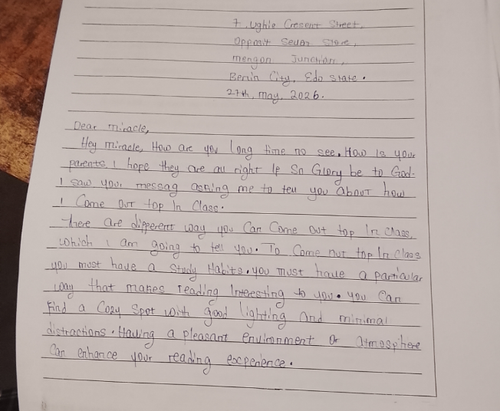 7, Ughie Crescent Street,
Opposit Seven Store,
mengon Junction,
Benin City, Edo State.
27th, may, 2026.
Dear miracle,
Hey miracle, How are you long time no see. How is your
parents I hope they are all right If So Glory be to God.
I saw your messag asking me to tell you About how
I Come out top In Class.
There are different way you Can Come out top In Class,
which I am going to tell you. To Come out top In Class
you must have a Study Habits. you must have a particular
way that makes reading Interesting to you. you Can
Find a Cozy Spot with good lighting And minimal
distractions. Having a pleasant environment or atmosphere
Can enhance your reading experience.